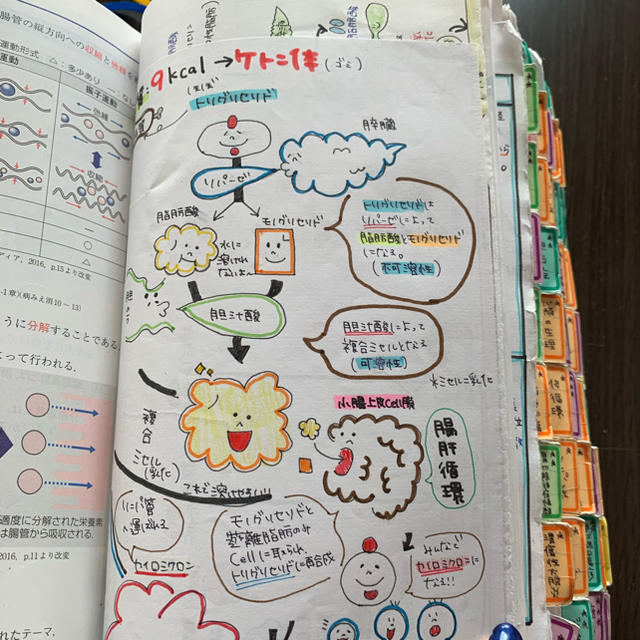 腸管の縦方向への収縮と弛緩を
運動形式 △：多少あり
運動
振子運動
弛緩
収縮
－
○
△
ディア，2016，p.15より改変
-1章)(病みえ消10～13)
うに分解することである.
よって行われる.
適度に分解された栄養素
は腸管から吸収される.
2016，p.11より改変
れたテーマ.
9kcal→ケトン体(ゴミ)
トリグリセリド
膵臓
リパーゼ
脂肪酸
モノグリセリド
水に
溶けれ
ないよ～
トリグリセリドは
リパーゼによって
脂肪酸とモノグリセリド
になる。
(不可溶性)
胆汁酸
胆汁酸によって
複合ミセルとなる
(可溶性)
※ミセル=乳化
複合
ミセル
(乳化)
これで溶けやすい!!
小腸上皮cell膜
腸肝循環
リンパ管
へ運ばれる
カイロミクロン
モノグリセリドと
遊離脂肪のみ
Cellに取られ、
トリグリセリドに再合成
みんなで
カイロミクロンに
なる!!